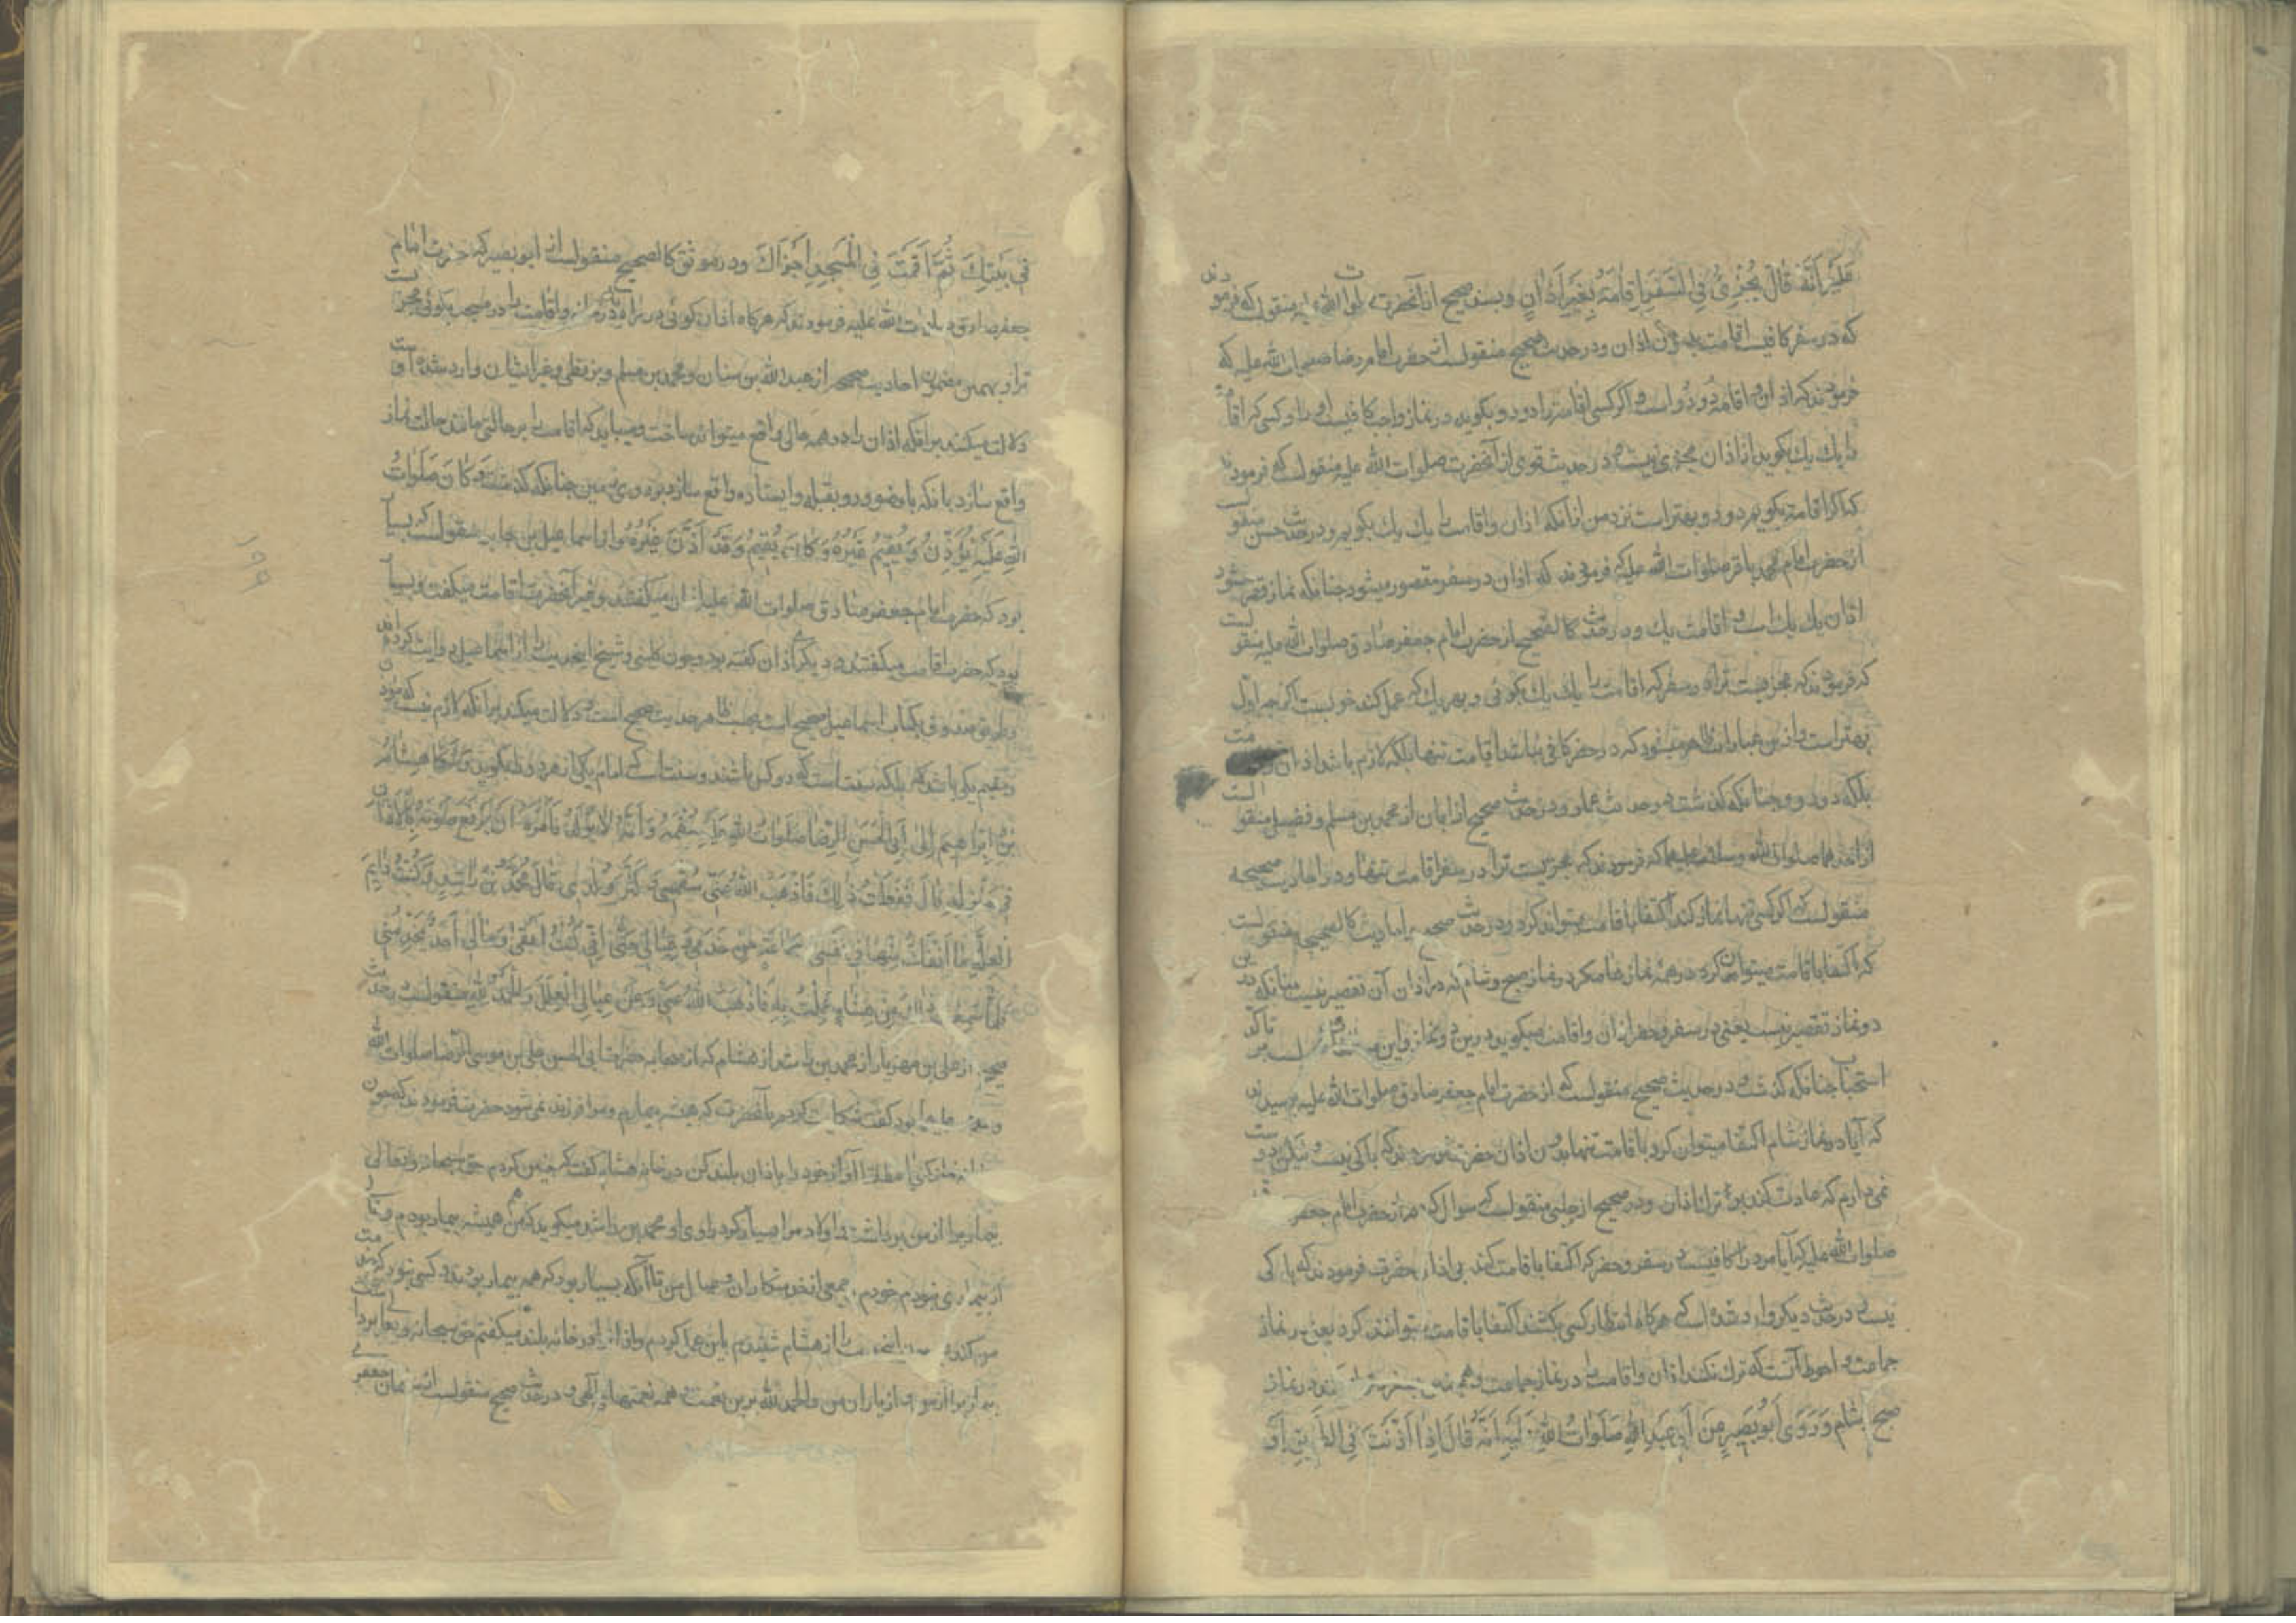 عَلَیْهِ اَنَّهُ قٰالَ یُجْزِئُ فِی السَّفَرِ اِقٰامَةٌ بِغَیْرِ اَذٰانٍ وبسند صحیح از آنحضرت صلوات الله علیه منقولست که فرمودند
که در سفر کافیست اقامت بدون اذان ودر حدیث صحیح منقولست از حضرت امام رضا صلوات الله علیه که
فرمودند که اذان و اقامه دو دو است و اگر کسی اقامت را دو دو بگوید در نماز واجب کافیست او را و کسی که اقامت
را یك یك بکوید از اذان مجزی نیست و در حدیث قوی از آنحضرت صلوات الله علیه منقولست که فرمودند
که اگر اقامت بکویم دو دو بهتر است نزد من از آنکه اذان واقامت را یك یك بکویم ودر حدیث حسن منقولست
از حضرت امام محمد باقر صلوات الله علیه که فرمودند که اذان در سفر مقصور میشود چنانکه نماز قصر میشود
اذان یك یك است و اقامت یك ودر حدیث کالصحیح از حضرت امام جعفر صادق صلوات الله علیه منقولست
که فرمودند که مجزیست ترا در سفر که اقامت را یك یك بکوئی و بهر یك که عمل کند خوبست اگرچه اول
بهتر است و از این عبارات ظاهر میشود که در حضر کافی نباشد اقامت تنها بلکه لازم باشد اذان
بلکه دو دو چنانکه گذشت در حدیث عمار ودر حدیث صحیح از ابان از محمد بن مسلم و فضیل منقولست
از احدهما صلوات الله وسلامه علیهما که فرمودند که مجزیست ترا در سفر اقامت تنها ودر احادیث صحیحه
منقولست که اگر کسی تنها نماز کند اکتفا باقامت میتواند کرد ودر حدیث صحیح و احادیث کالصحیح منقولست
که اکتفا باقامت میتوان کرد در همه نمازها مگر در نماز صبح و شام که در اذان آن تقصیر نیست چنانکه درین
دو نماز تقصیر نیست یعنی در سفر وحضر اذان واقامت میکوید درین دو نماز واین تاکد
استحباب چنانکه گذشت و در حدیث صحیح منقولست که از حضرت امام جعفر صادق صلوات الله علیه پرسیدند
که آیا در نماز شام اکتفا میتوان کرد باقامت تنها بدون اذان حضرت فرمودند که باکی نیست ولیکن دوست
نمی دارم که عادت کند بر ترك اذان ودر صحیح از حلبی منقولست که سوال کردم از حضرت امام جعفر
صلوات الله علیه که آیا مرد را کافیست در سفر وحضر که اکتفا باقامت کند بی اذان حضرت فرمودند که باکی
نیست ودر حدیث دیکر وارد شده است که هرکاه انتظار کسی نکشند اکتفا باقامت میتوانند کرد یعنی در نماز
جماعت و احوط آنست که ترك نکند اذان واقامت را در نماز جماعت وهم چنین در نماز
صبح و شام وَرَوَی اَبُو بَصِیرٍ عَنْ اَبِی عَبْدِ اللّٰهِ صَلَوٰاتُ اللّٰهِ عَلَیْهِ اَنَّهُ قٰالَ اِذٰا اَذَّنْتَ فِی الطَّرِیقِ اَوْ
فِی بَیْتِكَ ثُمَّ اَقَمْتَ فِی الْمَسْجِدِ اَجْزَاَكَ ودر موثق کالصحیح منقولست از ابو بصیر که حضرت امام
جعفر صادق صلوات الله علیه فرمودند که هرکاه اذان کوئی در راه یا در خانه واقامت را در مسجد بکوئی مجزیست
ترا و بهمین مضمون احادیث صحیحه از عبد الله بن سنان و محمد بن مسلم و بزنطی و غیر ایشان وارد شده است و
دلالت میکند برآنکه اذان را در همه حالی واقع میتواند ساخت و میباید که اقامت را بر حالتی مانند حالت نماز
واقع سازد بانکه با وضو و رو بقبله و ایستاده واقع سازد بر روی زمین چنانکه گذشت وَکٰانَ صَلَوٰاتُ
اللّٰهِ عَلَیْهِ یُؤَذِّنُ وَیُقِیمُ غَیْرُهُ وَکٰانَ یُقِیمُ وَقَدْ اَذَّنَ غَیْرُهُ واز اسماعیل بن جابر منقولست که بسیار
بود که حضرت امام جعفر صادق صلوات الله علیه اذان میکفتند و غیر آنحضرت اقامت میکفت و بسیار
بود که حضرت اقامت میکفتند و دیگری اذان کفته بود وچون کلینی و شیخ این حدیث را از اسماعیل روایت کرده اند
وطریق صدوق بکتاب اسماعیل صحیح است بحسب ظاهر حدیث صحیح است و دلالت میکند برآنکه لازم نیست که مؤذن
ومقیم یکی باشد بلکه سنت است که دو کس باشند و سنت است که امام یکی از هر دو را بکوید وَشَکٰا هِشٰامُ
بْنُ اِبْرٰاهِیمَ اِلٰی اَبِی الْحَسَنِ الرِّضٰا صَلَوٰاتُ اللّٰهِ عَلَیْهِ سُقْمَهُ وَاَنَّهُ لٰا یُولَدُ فَاَمَرَهُ اَنْ یَرْفَعَ صَوْتَهُ بِالْاَذٰانِ
فِی مَنْزِلِهِ قٰالَ فَفَعَلْتُ ذٰلِكَ فَاَذْهَبَ اللّٰهُ عَنِّی سُقْمِی وَکَثُرَ وُلْدِی قٰالَ مُحَمَّدُ بْنُ رٰاشِدٍ وَکُنْتُ دٰایِمَ
الْعِلَّةِ مٰا اَنْفَكُّ مِنْهٰا فِی نَفْسِی وَجَمٰاعَةٍ مِنْ خَدَمِی وَعِیٰالِی حَتّٰی اِنِّی کُنْتُ اَبْقٰی وَمٰالِی اَحَدٌ یَخْدُمُنِی
فَلَمّٰا سَمِعْتُ ذٰلِكَ مِنْ هِشٰامٍ عَمِلْتُ بِهِ فَاَذْهَبَ اللّٰهُ عَنِّی وَعَنْ عِیٰالِی الْعِلَلَ وَالْحَمْدُ لِلّٰهِ منقولست بحدیث
صحیح از علی بن مهزیار از محمد بن راشد از هشام که از صحابه حضرت ابی الحسن علی بن موسی الرضا صلوات الله
بود کفت شکایت کردم بآنحضرت که همیشه بیمارم و مرا فرزند نمی شود حضرت فرمودند که چون
آواز خود را باذان بلند کن در خانه هشام کفت که چنین کردم حق سبحانه و تعالی
بیماری مرا از من برداشت و اولاد مرا بسیار کرد راوی او محمد بن راشد میکوید که من همیشه بیمار بودم و
از بیماری نبودم خودم و جمعی از خدمتکاران و عیال من تا آنکه بسیار بود که همه بیمار بودند و کسی نبود که خدمت
من کند را از هشام شنیدم باین عمل کردم و اذان در خانه بلند میکفتم حق سبحانه و تعالی
مرا از من و از یاران من والحمد لله برین نعمت و همه نعمتهای الهی و در حدیث صحیح منقولست از سلیمان جعفری
۱۹۹